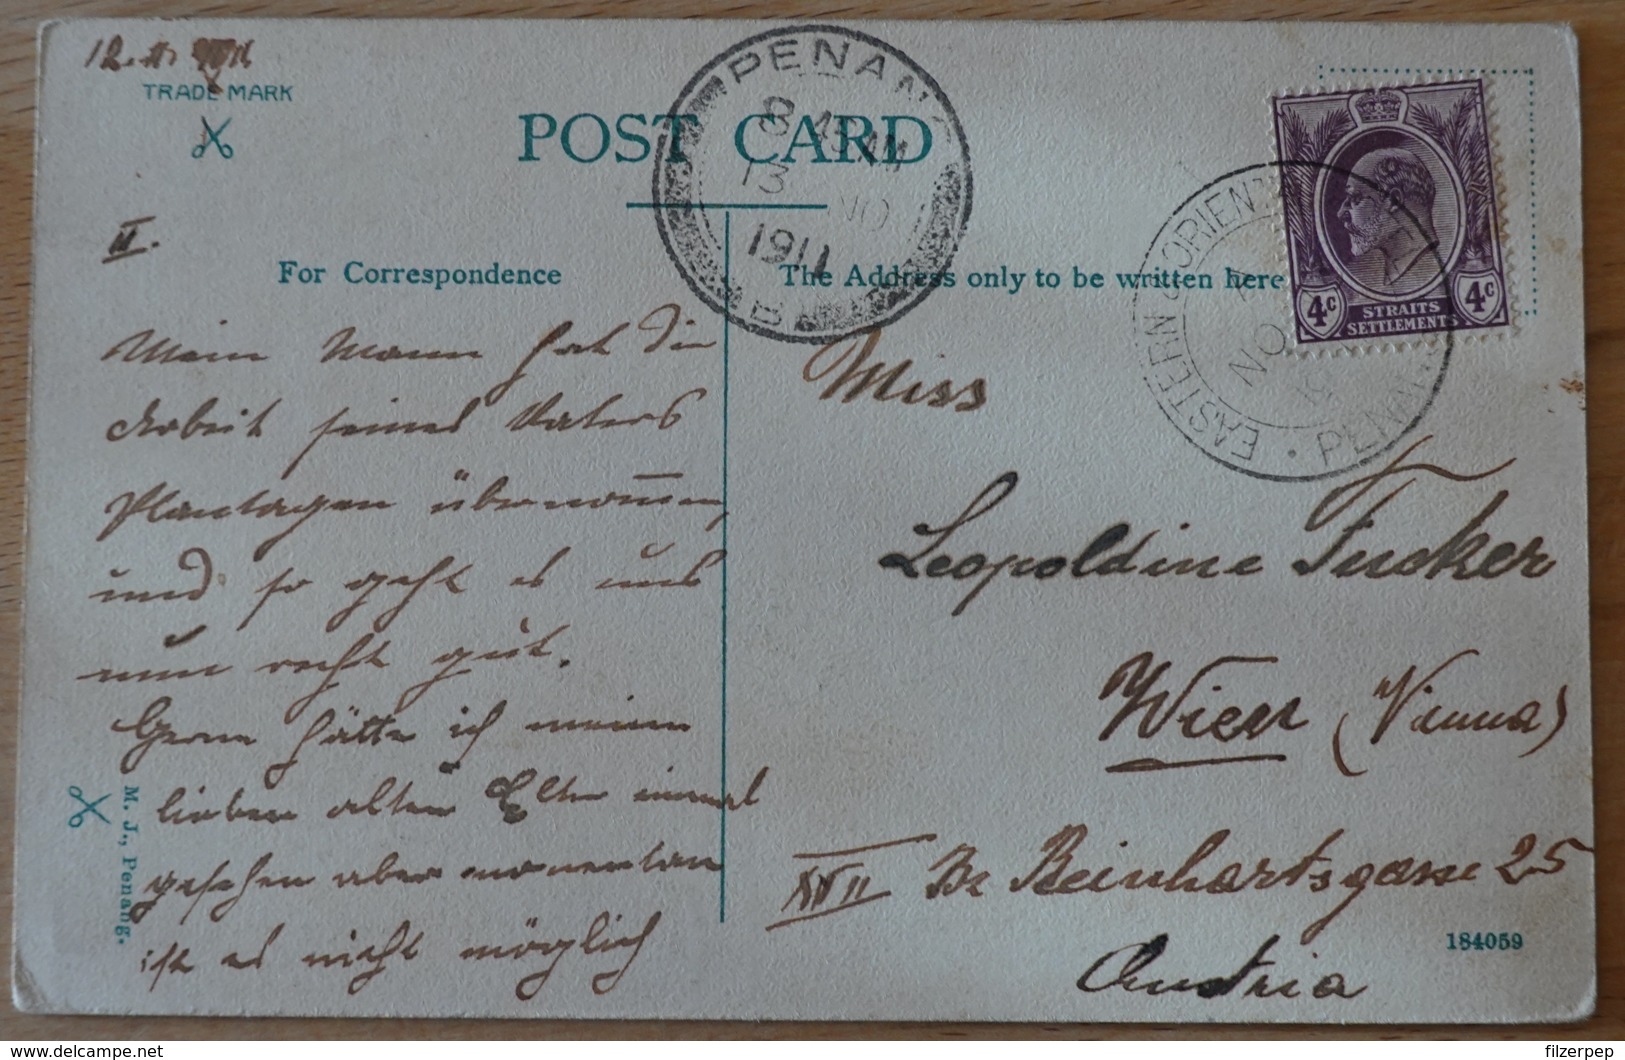 12. 11.
TRADE MARK
POST CARD
PENANG
8 45 AM
13 NO
1911
B
EASTERN & ORIENT
NO
PENA
4c 4c
STRAITS
SETTLEMENTS
II.
For Correspondence
The Address only to be written here
Mein Mann hat die
Arbeit seines Vaters
Plantagen übernommen,
und so geht es uns
nun recht gut.
Gerne hätte ich meine
lieben alten Eltern einmal
gesehen aber momentan
ist es nicht möglich
M. J., Penang.
Miss
Leopoldine Fucker
Wien (Vienna)
XVII Reinhartsgasse 25
Austria
184059
delcampe.net
filzerpep